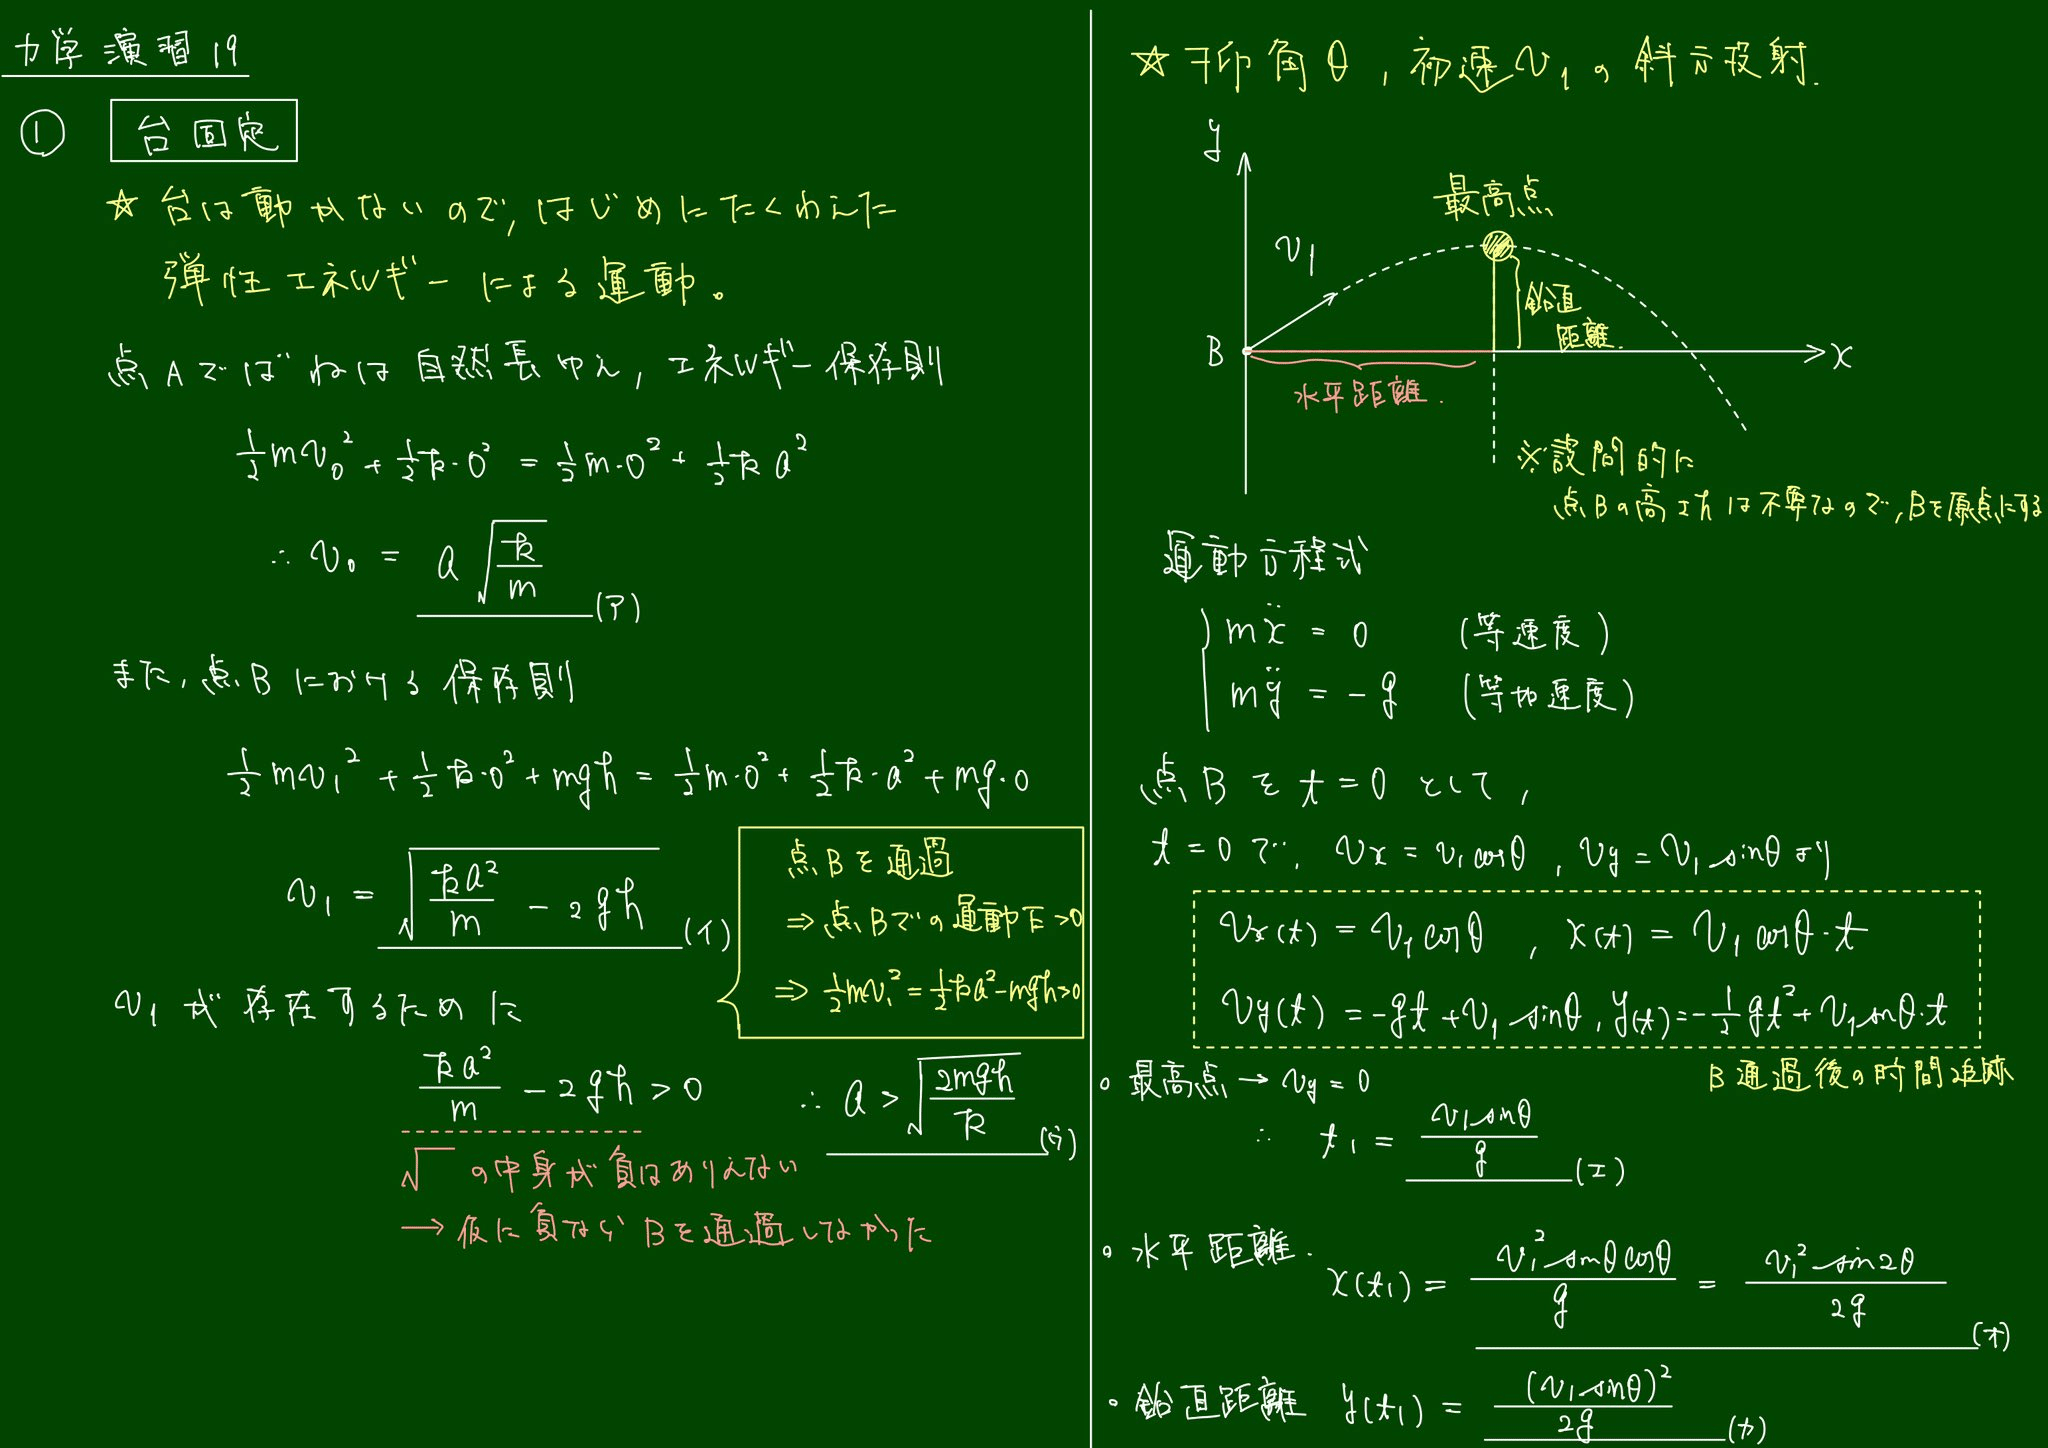 力学演習19
① 台固定
☆ 台は動かないので,はじめにたくわえた
弾性エネルギーによる運動。
点Aではばねは自然長ゆえ,エネルギー保存則
½mv₀² + ½k·0² = ½m·0² + ½ka²
∴ v₀ = a√(k/m) (ア)
また,点Bにおける保存則
½mv₁² + ½k·0² + mgh = ½m·0² + ½k·a² + mg·0
v₁ = √(ka²/m − 2gh) (イ)
点Bを通過
⇒ 点Bでの運動E>0
⇒ ½mv₁² = ½ka²−mgh>0
v₁が存在するために
ka²/m − 2gh > 0 ∴ a > √(2mgh/k) (ウ)
√ の中身が負はありえない
→ 仮に負ならBを通過してなかった
☆ 仰角θ,初速v₁の斜方投射.
y
最高点
v₁
鉛直
距離.
B
x
水平距離.
※設問的に
点Bの高さhは不要なので,Bを原点にする
運動方程式
mẍ = 0 (等速度)
mÿ = −g (等加速度)
点Bをt=0として,
t=0で, vx = v₁cosθ , vy = v₁sinθ より
vx(t) = v₁cosθ , x(t) = v₁cosθ·t
vy(t) = −gt + v₁sinθ, y(t) = −½gt² + v₁sinθ·t
B通過後の時間追跡
∘ 最高点 → vy = 0
∴ t₁ = v₁sinθ/g (エ)
∘ 水平距離.
x(t₁) = v₁²sinθcosθ/g = v₁²sin2θ/2g (オ)
∘ 鉛直距離 y(t₁) = (v₁sinθ)²/2g (カ)